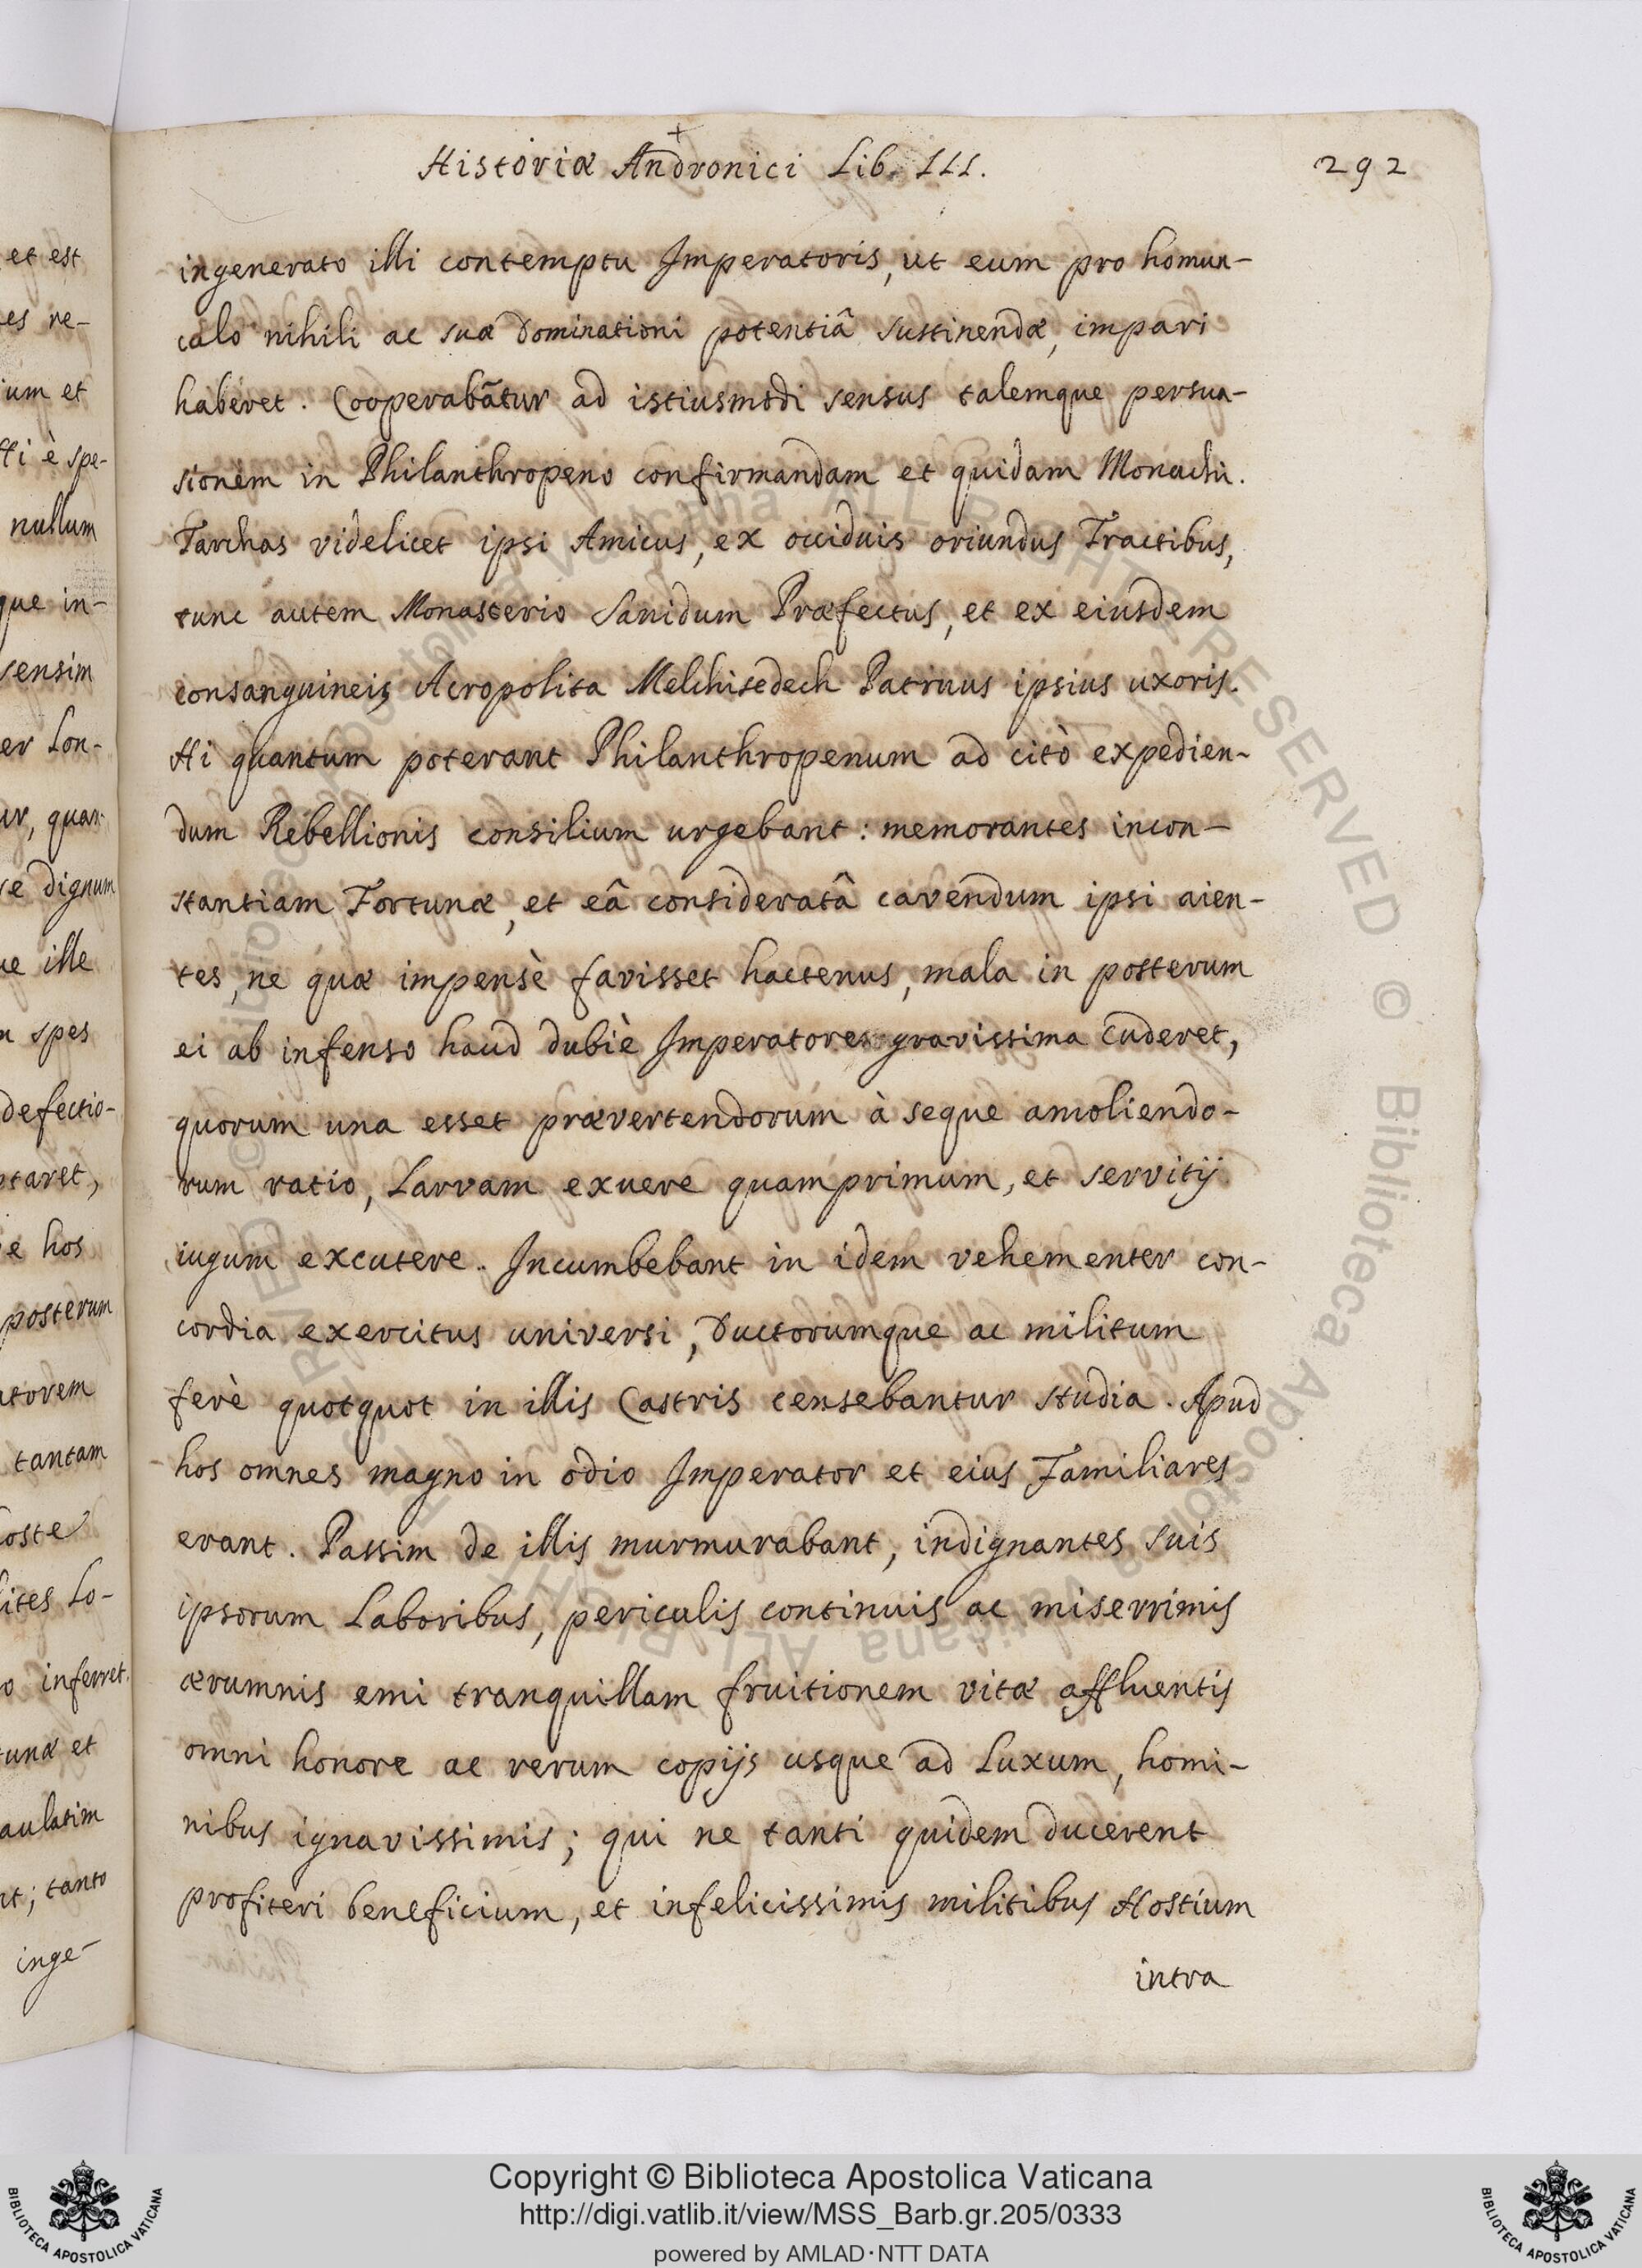 Historiæ Andronici Lib. III.
292
ingenerato illi contemptu Imperatoris, ut eum pro homun-
culo nihili ac suæ Dominationi potentiâ sustinendæ, impari
haberet. Cooperabãtur ad istiusmodi sensus talemque persua-
sionem in Philanthropeno confirmandam et quidam Monachi.
Tarchas videlicet ipsi Amicus, ex occiduis oriundus Tractibus,
tunc autem Monasterio Sanidum Præfectus, et ex eiusdem
consanguineis Acropolita Melchisedech Patruus ipsius uxoris.
Hi quantum poterant Philanthropenum ad citò expedien-
dum Rebellionis consilium urgebant: memorantes incon-
stantiam Fortunæ, et eâ consideratâ cavendum ipsi aien-
tes, ne quæ impensè favisset hactenus, mala in posterum
ei ab infenso haud dubiè Imperatores gravissima cuderet,
quorum una esset prævertendorum à seque amoliendo-
rum ratio, Larvam exuere quamprimum, et servitij
iugum excutere. Incumbebant in idem vehementer con-
cordia exercitus universi, Ductorumque ac militum
ferè quotquot in illis Castris censebantur studia. Apud
hos omnes magno in odio Imperator et eius Familiares
erant. Passim de illis murmurabant, indignantes suis
ipsorum Laboribus, periculis continuis ac miserrimis
ærumnis emi tranquillam fruitionem vitæ affluentis
omni honore ac rerum copijs usque ad Luxum, homi-
nibus ignavissimis; qui ne tanti quidem ducerent
profiteri beneficium, et infelicissimis militibus Hostium
intra
et est
es re-
ium et
è spe-
nullum
que in-
sensim
er Lon-
dignum
ille
spes
defectio-
hos
posterum
tantam
Lo-
inferret.
et
tanto
inge-
Copyright © Biblioteca Apostolica Vaticana
http://digi.vatlib.it/view/MSS_Barb.gr.205/0333
powered by AMLAD·NTT DATA
BIBLIOTECA APOSTOLICA VATICANA
BIBLIOTECA APOSTOLICA VATICANA